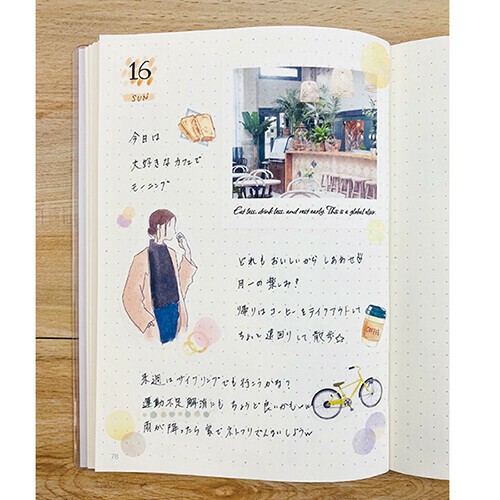 16
SUN
今日は
大好きなカフェで
モーニング
Eat less, drink less, and rest early. This is a global elixir.
どれもおいしいから しあわせ
月一の楽しみ!
帰りはコーヒーをテイクアウトして
ちょっと遠回りして散歩☆
COFFEE
来週はサイクリングでも行こうかな?
運動不足解消にも ちょうど良いかも
雨が降ったら家でネトフリざんまいしようw
78